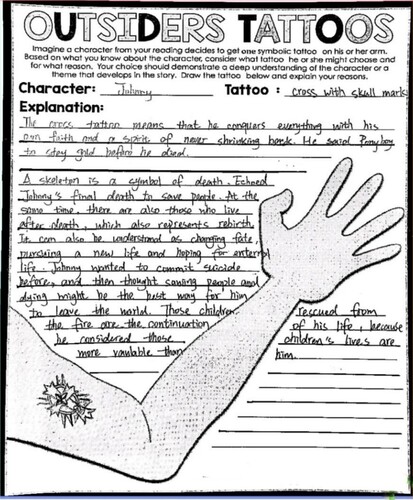 OUTSIDERS TATTOOS
Imagine a character from your reading decides to get one symbolic tattoo on his or her arm.
Based on what you know about the character, consider what tattoo he or she might choose and
for what reason. Your choice should demonstrate a deep understanding of the character or a
theme that develops in the story. Draw the tattoo below and explain your reasons.
Character: Johnny Tattoo: cross with skull marks
Explanation:
The cross tattoo means that he conquers everything with his
own faith and a spirit of never shrinking back. He said Ponyboy
to stay gold before he died.
A skeleton is a symbol of death. Echoed
Johnny's final death to save people. At the
same time, there are also those who live
after death, which also represents rebirth.
It can also be understand as changing fate,
pursuing a new life and hoping for eternal
life. Johnny wanted to commit suicide
before, and then thought saving people and
dying might be the best way for him
to leave the world. Those children
rescued from
the fire are the continuation
of his life, because
he considered those
children's lives are
more valuable than
him.